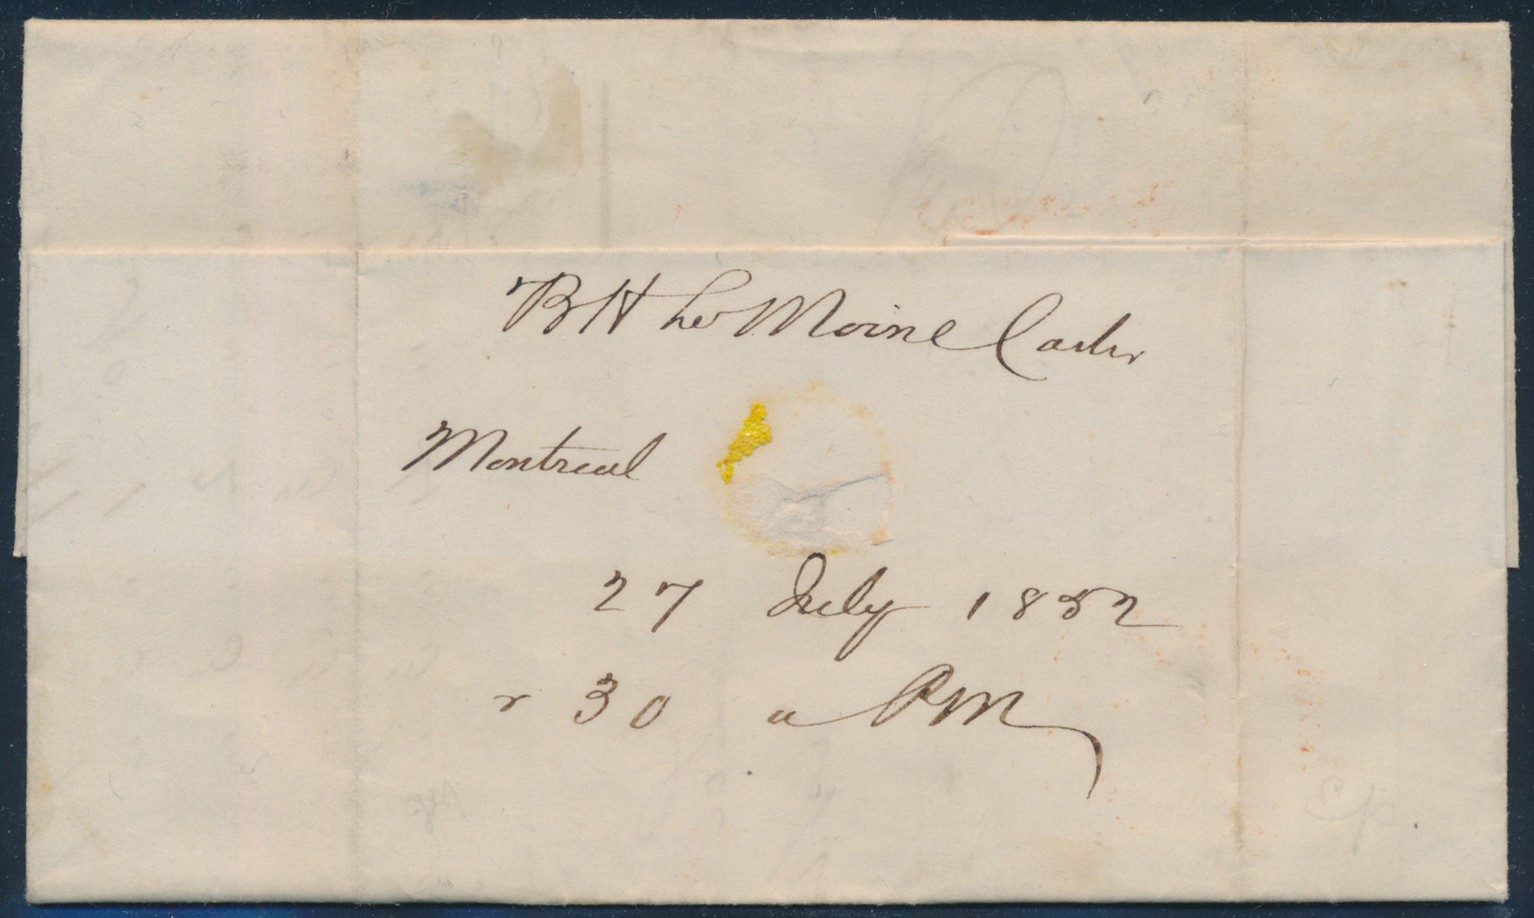 B H Le Moine Cashr
Montreal
27 July 1852
r 30 a PM